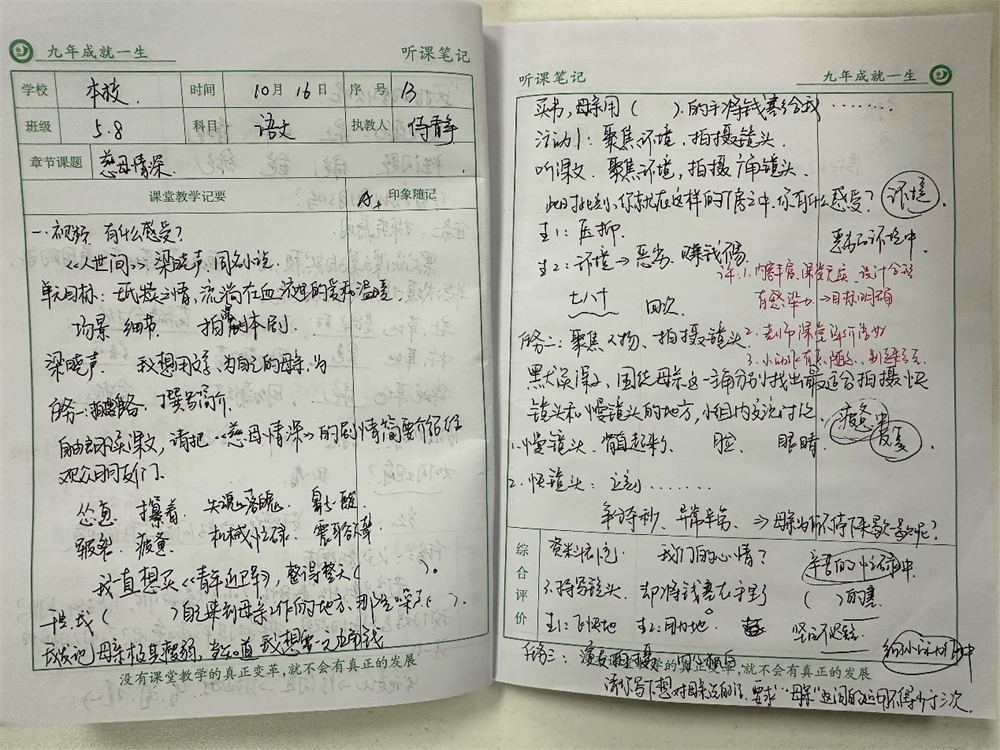 九年成就一生 听课笔记
学校 本校 时间 10月16日 序号 13
班级 5.8 科目 语文 执教人
章节课题 慈母情深
课堂教学记要 印象随记
一.视频 有什么感受?
《人世间》梁晓声 同名小说
单元目标: 舐犊之情,流淌在血液里的爱和温暖
场景 细节 拍摄剧本剧
梁晓声 我想用文字,为自己的母亲,为
任务一: 撰写简介.
自由朗读课文,请把《慈母情深》的剧情简要介绍给
观众朋友们.
怂恿 攥着 失魂落魄
疲惫 机械忙碌 震耳欲聋
我一直想买《青年近卫军》,整得整天( ).
于是我( )自己来到母亲工作的地方,那里噪声( ).
我发现母亲极其瘦弱,当知道我想要一元五角钱
没有课堂教学的真正变革,就不会有真正的发展
听课笔记 九年成就一生
买书,母亲用( )的手将钱塞给我········
活动1: 聚焦环境,拍摄镜头
听课文 聚焦环境,拍摄广角镜头.
此时此刻,你就在这样的厂房之中,你有什么感受? 环境
生1: 压抑. 恶劣的环境中
生2: 环境→恶劣 赚钱
评: 1.内容丰富,课堂充实,设计合理
七八十 四次
有感染力→目标明确
任务二: 聚焦人物、拍摄镜头 2.老师课堂评价
3.小
默读课文,围绕母亲这一主角分别找出最适合拍摄快
镜头和慢镜头的地方,小组内交流讨论. 疲惫中
1.慢镜头: 直起来 脸 眼睛
2.快镜头: 立刻······
争分夺秒、异常辛苦 ⇒母亲为何不停下来歇一歇呢?
综合评价
资料补充: 我们的心情? 辛苦的忙碌中
3.特写镜头: 却将钱塞在手里 ( )的塞
生1: 飞快地 生2: 用力地.
任务三:
没有课堂教学的真正变革,就不会有真正的发展
请你写下想对母亲说的话,要求:“母亲”这词的运用不得少于三次.